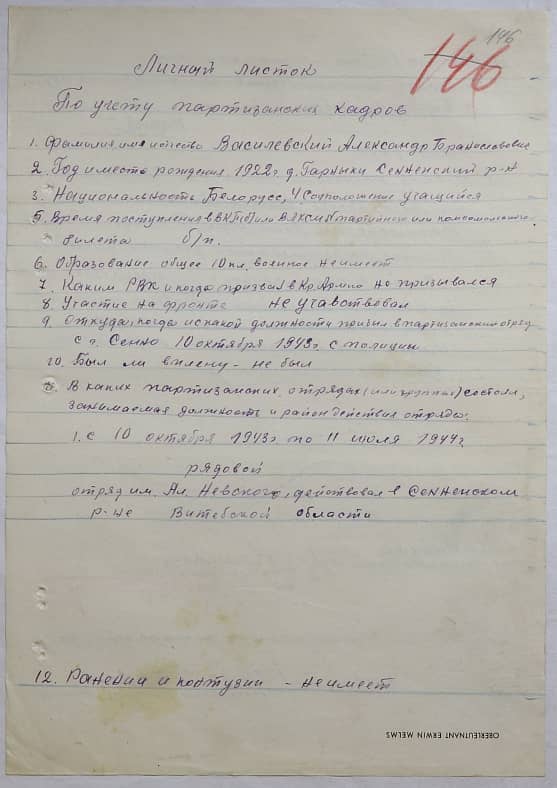 146
146
Личный листок
По учету партизанских кадров
1. Фамилия, имя и отчество Василевский Александр Брониславович
2. Год и место рождения 1922 г. д. Гарныки Сенненский р-н
3. Национальность Белорусс, 4 Соцположение учащийся
5. Время поступления в ВКП(б) или ВЛКСМ № партийного или комсомольского
билета б/п.
6. Образование общее 10 кл. военное не имеет
7. Каким РВК и когда призван в Кр. Армию не призывался
8. Участие на фронте не участвовал
9. Откуда, когда и с какой должности прибыл в партизанский отряд
с г. Сенно 10 октября 1943 г. с полиции
10. Был ли в плену - не был
11. В каких партизанских отрядах (или группах) состоял,
занимаемая должность и район действия отряды.
1. с 10 октября 1943 г по 11 июля 1944 г
рядовой
отряд им. Ал. Невского, действовал в Сенненском
р-не Витебской области
12. Ранении и контузии - не имеет
OBERLEUTNANT ERWIN MELMS